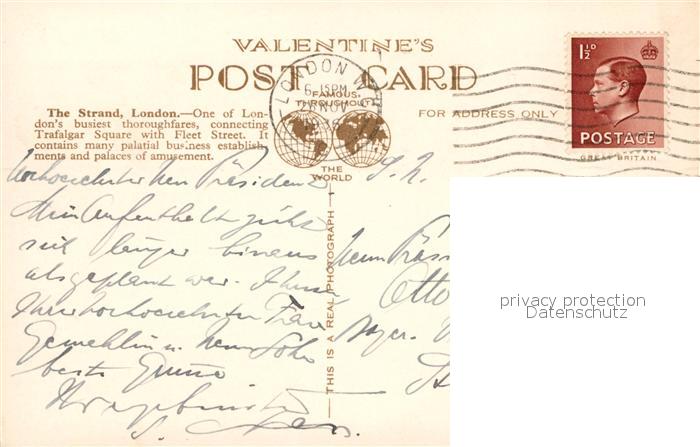 VALENTINE'S
POST CARD
FAMOUS THROUGHOUT
THE WORLD
The Strand, London.—One of Lon-
don's busiest thoroughfares, connecting
Trafalgar Square with Fleet Street. It
contains many palatial business establish-
ments and palaces of amusement.
FOR ADDRESS ONLY
LONDON
6.15PM
NOV
1½D
POSTAGE
GREAT BRITAIN
THIS IS A REAL PHOTOGRAPH
Hochverehrter Herr Präsident
Mein Aufenthalt zieht
sich länger hinaus
als geplant war. Ihnen
Ihrer hochverehrten Frau
Gemahlin u. Herrn Sohn
beste Grüße
S. H.
Herrn Präs
Otto
Bayer.
privacy protection
Datenschutz